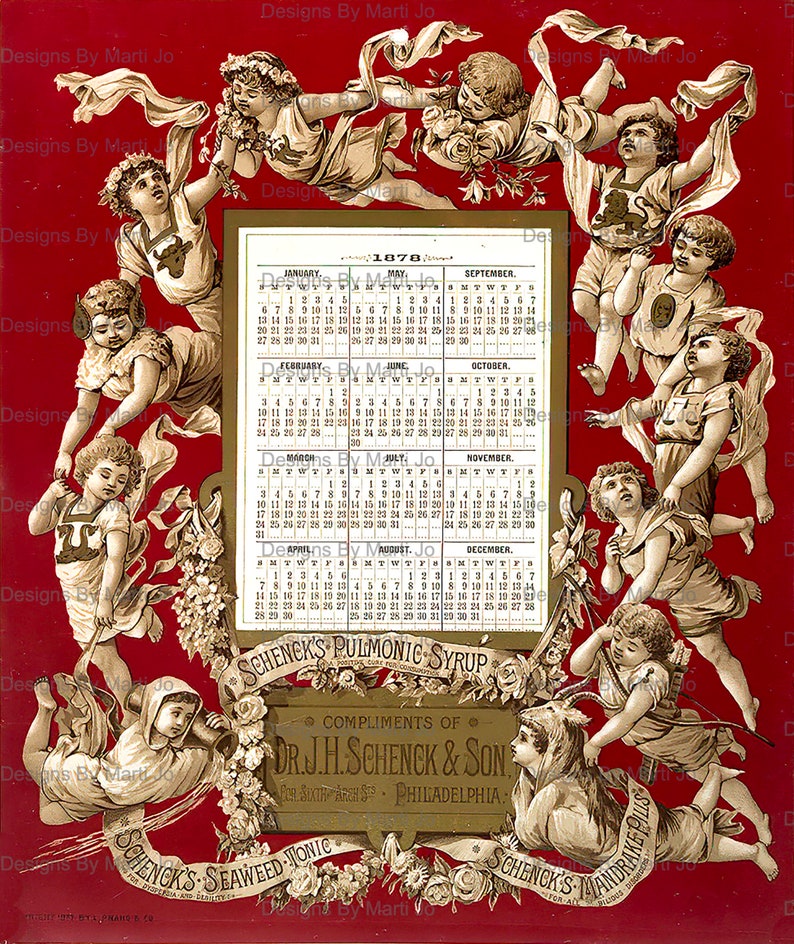 Designs By Marti Jo
1878
JANUARY.
S M T W T F S
1 2 3 4 5
6 7 8 9 10 11 12
13 14 15 16 17 18 19
20 21 22 23 24 25 26
27 28 29 30 31
MAY.
S M T W T F S
1 2 3 4
5 6 7 8 9 10 11
12 13 14 15 16 17 18
19 20 21 22 23 24 25
26 27 28 29 30 31
SEPTEMBER.
S M T W T F S
1 2 3 4 5 6 7
8 9 10 11 12 13 14
15 16 17 18 19 20 21
22 23 24 25 26 27 28
29 30
FEBRUARY.
S M T W T F S
1 2
3 4 5 6 7 8 9
10 11 12 13 14 15 16
17 18 19 20 21 22 23
24 25 26 27 28
JUNE.
S M T W T F S
1
2 3 4 5 6 7 8
9 10 11 12 13 14 15
16 17 18 19 20 21 22
23 24 25 26 27 28 29
30
OCTOBER.
S M T W T F S
1 2 3 4 5
6 7 8 9 10 11 12
13 14 15 16 17 18 19
20 21 22 23 24 25 26
27 28 29 30 31
MARCH.
S M T W T F S
1 2
3 4 5 6 7 8 9
10 11 12 13 14 15 16
17 18 19 20 21 22 23
24 25 26 27 28 29 30
31
JULY.
S M T W T F S
1 2 3 4 5 6
7 8 9 10 11 12 13
14 15 16 17 18 19 20
21 22 23 24 25 26 27
28 29 30 31
NOVEMBER.
S M T W T F S
1 2
3 4 5 6 7 8 9
10 11 12 13 14 15 16
17 18 19 20 21 22 23
24 25 26 27 28 29 30
APRIL.
S M T W T F S
1 2 3 4 5 6
7 8 9 10 11 12 13
14 15 16 17 18 19 20
21 22 23 24 25 26 27
28 29 30
AUGUST.
S M T W T F S
1 2 3
4 5 6 7 8 9 10
11 12 13 14 15 16 17
18 19 20 21 22 23 24
25 26 27 28 29 30 31
DECEMBER.
S M T W T F S
1 2 3 4 5 6 7
8 9 10 11 12 13 14
15 16 17 18 19 20 21
22 23 24 25 26 27 28
29 30 31
SCHENCK'S PULMONIC SYRUP
A POSITIVE CURE FOR CONSUMPTION
COMPLIMENTS OF
DR. J. H. SCHENCK & SON,
COR. SIXTH AND ARCH STS. PHILADELPHIA.
SCHENCK'S SEAWEED TONIC
FOR DYSPEPSIA AND DEBILITY
SCHENCK'S MANDRAKE PILLS
FOR ALL BILIOUS DISORDERS
BY L. PRANG & CO.